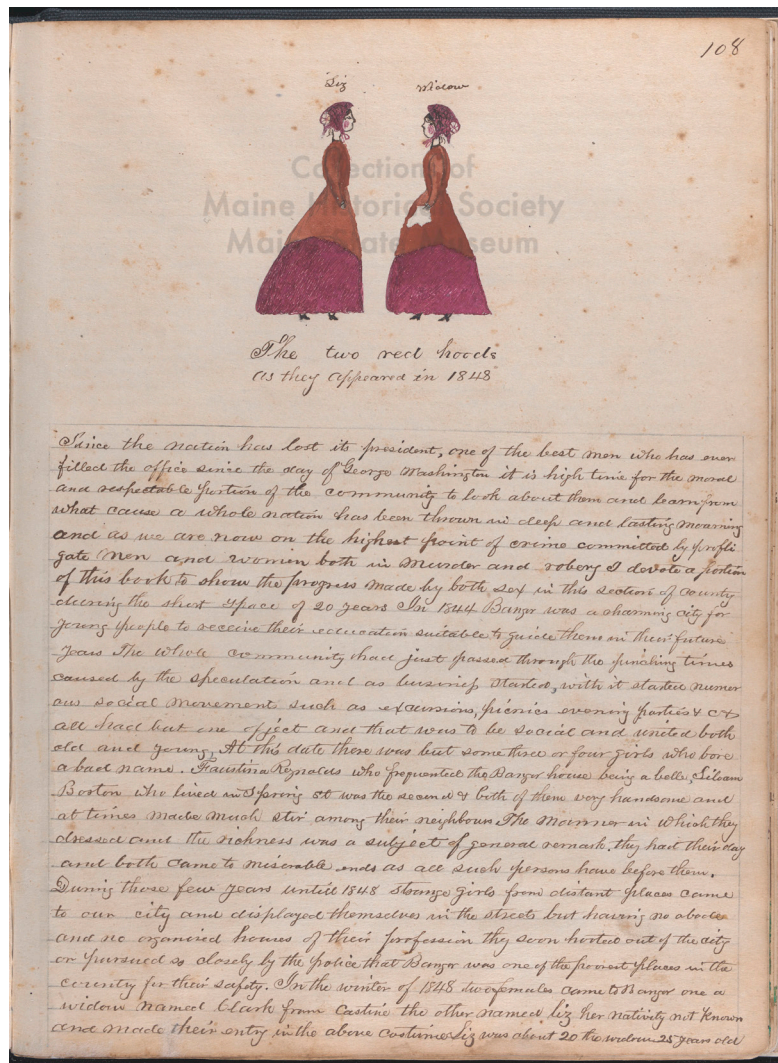 108
Liz Widow
Collections of
Maine Historical Society
Maine State Museum
The two red hoods
as they appeared in 1848
Since the nation has lost its president, one of the best men who has ever
filled the office since the day of George Washington it is high time for the moral
and respectable portion of the community to look about them and learn from
what cause a whole nation has been thrown in deep and lasting mourning
and as we are now on the highest point of crime committed by profli
gate men and women both in murder and robery I devote a portion
of this book to show the progress made by both sex in this section of county
during the short space of 20 years In 1844 Bangor was a charming city for
young people to receive their education suitable to guide them in their future
years The whole community had just passed through the pinching times
caused by the speculation and as business started, with it started numer
ous social movement such as excursions, picnics evening parties &c &
all had but one object and that was to be social and united both
old and young. At this date there was but some three or four girls who bore
a bad name. Faustina Reynolds who frequented the Bangor house being a belle, Siloam
Boston who lived in Spring st was the second & both of them very handsome and
at times made much stir among their neighbours The manner in which they
dressed and the richness was a subject of general remark. they had their day
and both came to miserable ends as all such persons have before them.
During those few years untill 1848 strange girls from distant places came
to our city and displayed themselves in the streets but having no abode
and no organised houses of their profession they soon hosted out of the city
or pursued so closely by the police that Bangor was one of the poorest places in the
county for their safety. In the winter of 1848 two females came to Bangor one a
widow named Clark from Castine the other named Liz her nativity not known
and made their entry in the above costume Liz was about 20 the widow 25 years old